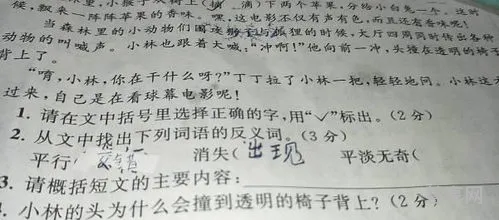 里，小猴子从树上(摘 滴)下两个苹果，分给小白兔一个。这时
候，飘来一阵阵苹果的香味。嘿，这电影不仅有声有色，而且还有香味呢！
当森林里的小动物们围攻狮子与狐狸的时候，大厅四周同时传出各种
动物的叫喊声。小林也跟着大喊：“冲啊！”他向前一冲，头撞在透明的椅子
背上了。
“唷，小林，你在干什么呀？”丁丁拉了小林一把，轻轻地问。小林这才
过来，自己是在看球幕电影呢！
1. 请在文中括号里选择正确的字，用“√”标出。(2 分)
2. 从文中找出下列词语的反义词。(3 分)
平行( 交错 消失(出现 平淡无奇(
3. 请概括短文的主要内容：
. 小林的头为什么会撞到透明的椅子背上？(2 分)